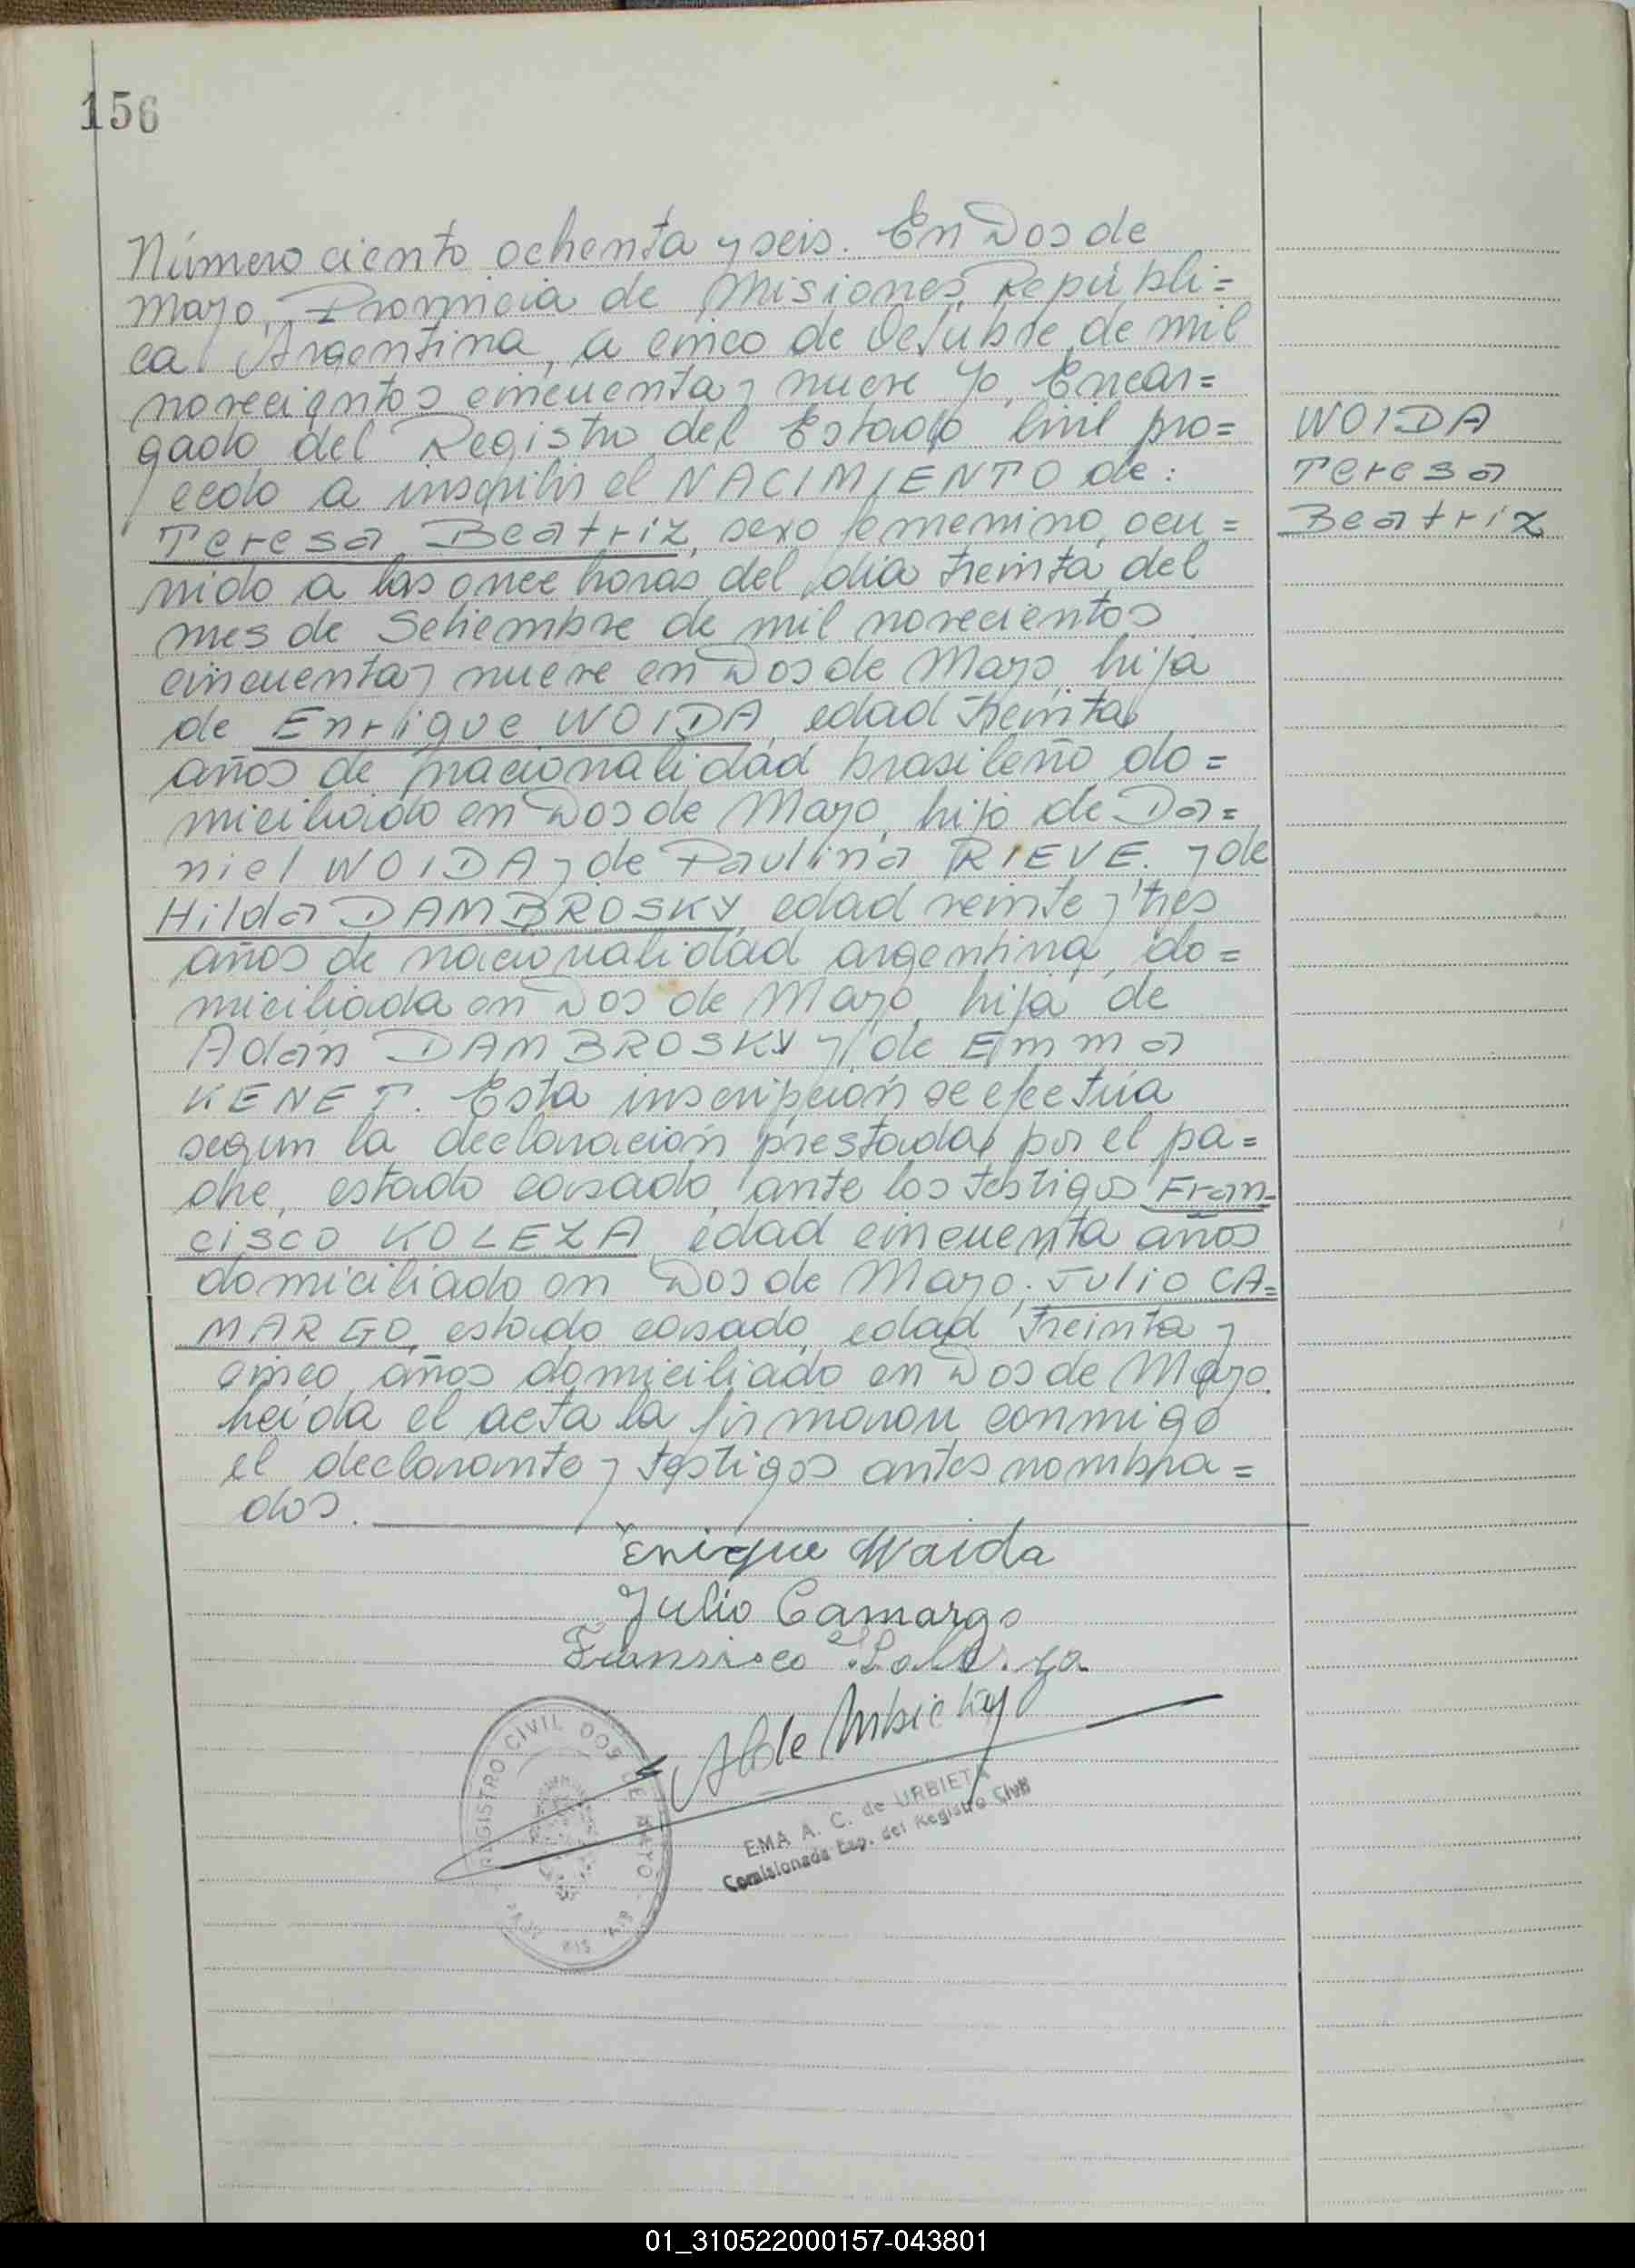 156
Número ciento ochenta y seis. En Dos de
Mayo, Provincia de Misiones, Repúbli=
ca Argentina, a cinco de Octubre de mil
novecientos cincuenta y nueve yo, Encar=
gado del Registro del Estado Civil pro=
cedo a inscribir el NACIMIENTO de:
Teresa Beatriz, sexo femenino, ocu=
rrido a las once horas del día treinta del
mes de Setiembre de mil novecientos
cincuenta y nueve en Dos de Mayo, hija
de Enrique WOIDA, edad treinta
años de nacionalidad brasileño do=
miciliado en Dos de Mayo, hijo de Da=
niel WOIDA y de Paulina RIEVE. y de
Hilda DAMBROSKY, edad veinte y tres
años de nacionalidad argentina, do=
miciliada en Dos de Mayo, hija de
Adán DAMBROSKY y de Emma
KENET. Esta inscripción se efectúa
segun la declaración prestada por el pa=
dre, estado casado, ante los testigos Fran=
cisco KOLEZA, edad cincuenta años
domiciliado en Dos de Mayo; Julio CA=
MARGO, estado casado, edad treinta y
cinco años domiciliado en Dos de Mayo.
Leída el acta la firmaron conmigo
el declarante y testigos antes nombra=
dos.
WOIDA
Teresa
Beatriz
Enrique Woida
Julio Camargo
Fransisco
REGISTRO CIVIL DOS DE MAYO
EMA A. C. de URBIETA
Comisionada Esp. del Registro Civil
01_310522000157-043801